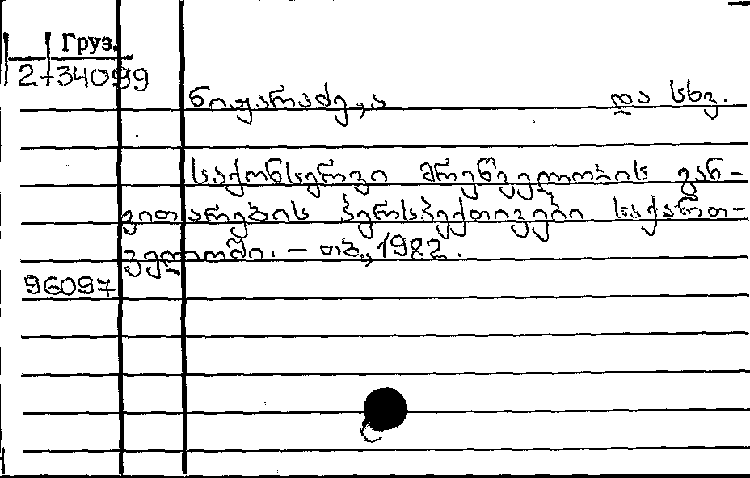 Груз.
2-34099
ნიჟარაძე, ა და სხვ.
საქონსერვი მრეწველობის გან-
ვითარების პერსპექტივები საქართ-
ველოში. — თბ., 1982.
96097